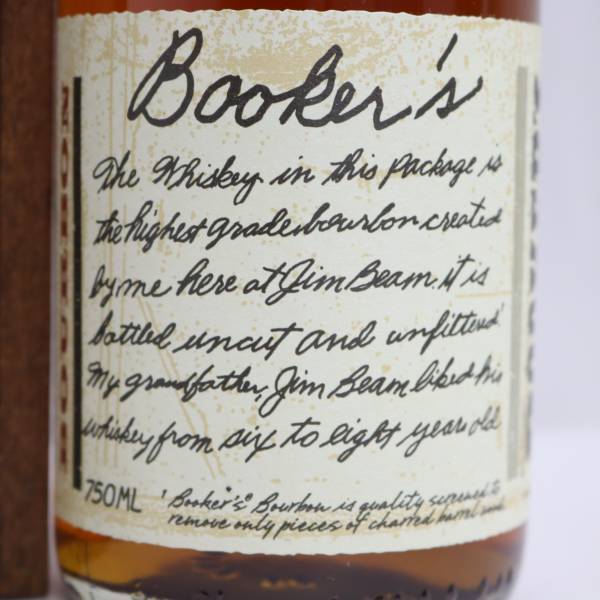 Booker's
The Whiskey in this package is
the highest grade bourbon created
by me here at Jim Beam it is
bottled uncut and unfiltered'
My grandfather, Jim Beam liked his
whiskey from six to eight years old
750ML
' Booker's® Bourbon is quality screened to
remove only pieces of charred barrel wood
BOURBON